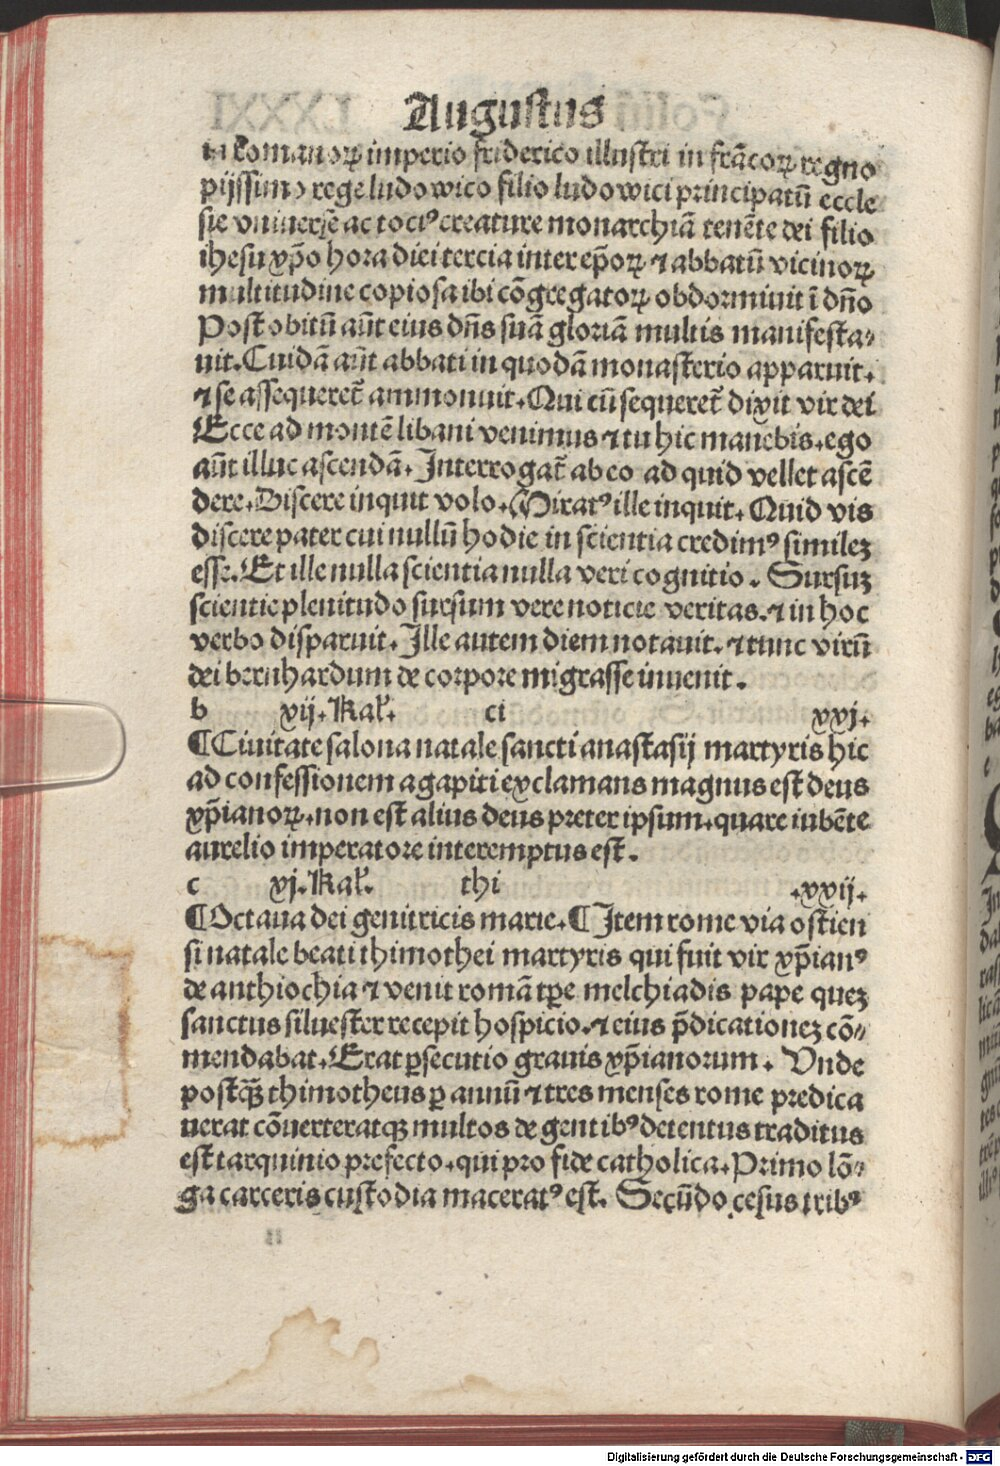 Augustus
in Romanoꝝ imperio friderico illustri in frācoꝝ regno
pijssimo rege ludowico filio ludowici principatū eccle
sie vniuerse ac tociꝰ creature monarchiā tenēte dei filio
ihesu xp̄o hora diei tercia inter ep̄oꝝ ⁊ abbatū vicinoꝝ
multitudine copiosa ibi cōgregatoꝝ obdormiuit ī dn̄o
Post obitū aūt eius dn̄s suā gloriā multis manifesta⸗
uit. Cuidā aūt abbati in quodā monasterio apparuit.
⁊ se assequeret̄ ammonuit. Qui cū sequeret̄ dixit vir dei
Ecce ad montē libani venimus ⁊ tu hic manebis. ego
aūt illuc ascendā. Interrogat̄ ab eo ad quid vellet ascē
dere. Discere inquit volo. Miratꝰ ille inquit. Quid vis
discere pater cui nullū hodie in scientia credimꝰ simileꝫ
esse. Et ille nulla scientia nulla veri cognitio. Sursuꝫ
scientie plenitudo sursum vere noticie veritas. ⁊ in hoc
verbo disparuit. Ille autem diem notauit. ⁊ tunc virū
dei bernhardum de corpore migrasse inuenit.
b xij. Kal̄. ci xxj.
¶ Ciuitate salona natale sancti anastasij martyris hic
ad confessionem agapiti exclamans magnus est deus
xp̄ianoꝝ. non est alius deus preter ipsum. quare iubēte
aurelio imperatore interemptus est.
c xj. Kal̄. thi .xxij.
¶ Octaua dei genitricis marie. ¶ Item rome via ostien
si natale beati thimothei martyris qui fuit vir xp̄ianꝰ
de anthiochia ⁊ venit romā tꝑe melchiadis pape queꝫ
sanctus siluester recepit hospicio. ⁊ eius p̄dicationeꝫ cō⸗
mendabat. Erat ꝑsecutio grauis xp̄ianorum. Vnde
postq̄ꝫ thimotheus ꝑ annū ⁊ tres menses rome predica
uerat cōuerteratqꝫ multos de gentibꝰ detentus traditus
est tarquinio prefecto. qui pro fide catholica. Primo lō⸗
ga carceris custodia maceratꝰ est. Secūdo cesus tribꝰ
Digitalisierung gefördert durch die Deutsche Forschungsgemeinschaft - DFG